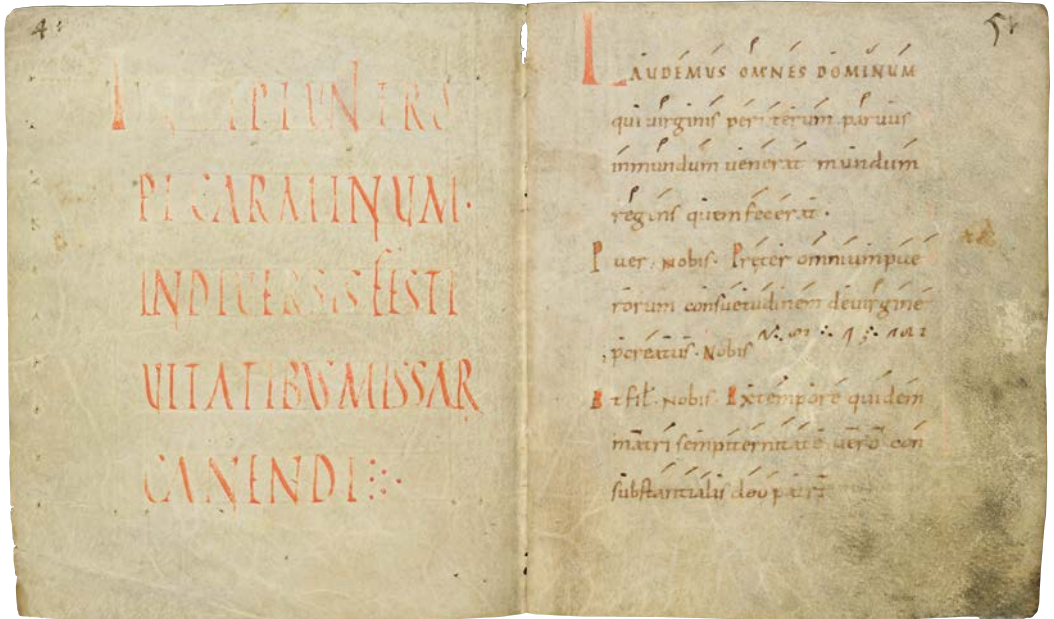 4
INCIPIUNT TRO
PI CARMINUM·
IN DIUERSIS FESTI
UITATIBUS MISSAR
CANENDI
5
LAUDEMUS OMNES DOMINUM
qui uirginis per uterum paruus
inmundum uenerat mundum
regens quem fecerat·
Puer· Nobis· Preter omnium pue
rorum consuetudinem de uirgine
pcreatus· Nobis
Et fil· Nobis· Ex tempore quidem
matri sempiternitate uero con
substantialis deo patri